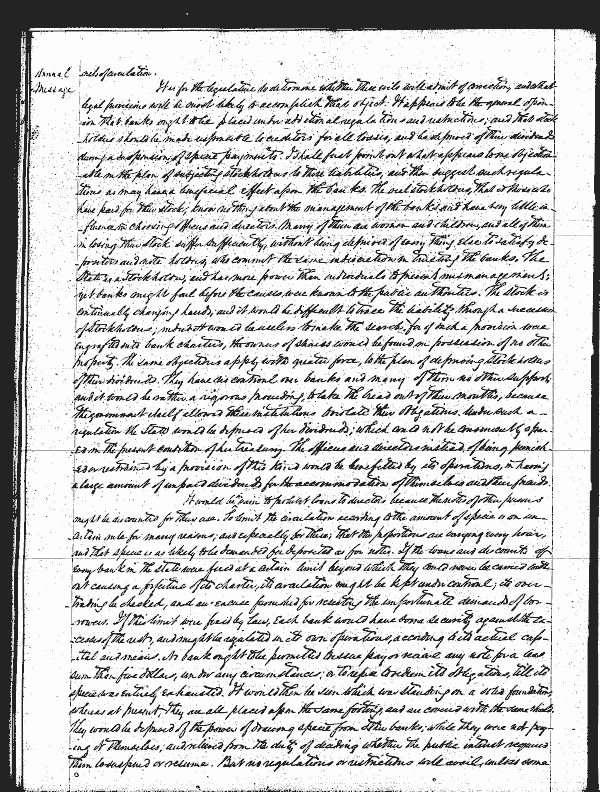 Annual
Message
ness of circulation.
It is for the legislature to determine whether these evils will admit of correction, and what
legal provisions will be most likely to accomplish that object. It appears to be the general opin-
ion that banks ought to be placed under additional regulations and restrictions; and that stock
holders should be made responsible to creditors for all losses, and be deprived of their dividends
during a suspension of specie payments. I shall first point out what appears to me objection-
able in the plan of subjecting stockholders to these liabilities, and then suggest such regula-
tions as may have a beneficial effect upon the banks. The real stockholders, that is those who
have paid for their stock, know nothing about the management of the banks and have very little in-
fluence in choosing officers and directors. Many of them are women and children, and all of them
in losing their stock suffer sufficiently, without being deprived of every thing else to satisfy de-
positors and note holders, who commit the same indiscretion in trusting the banks. The
State is a stockholder, and has more power than individuals to prevent mismanagement;
yet banks might fail before the causes were known to the public authorities. The stock is
continually changing hands, and it would be difficult to trace the liability through a succession
of stockholders; indeed it would be useless to make the search, for if such a provision were
engrafted into bank charters, the owners of shares would be found in possession of no other
property. The same objections apply with greater force, to the plan of depriving stockholders
of their dividends. They have no control over banks and many of them no other support,
and it would be rather a rigorous proceeding, to take the bread out of their mouths, because
the government itself allowed these institutions to violate their obligations. Under such a
regulation the State would be deprived of her dividends; which could not be conveniently spar-
ed in the present condition of her treasury. The officers and directors instead of being punish-
ed or restrained by a provision of this kind would be benefitted by its operations, in having
a large amount of unpaid dividends for the accommodation of themselves and their friends.
It would be vain to prohibit loans to directors because the notes of other persons
might be discounted for their use. To limit the circulation according to the amount of specie is an un-
certain rule for many reasons; and especially for these; That the proportions are varying every hour,
and that specie is as likely to be demanded for deposites as for notes. If the loans and discounts of
every bank in the state were fixed at a certain limit beyond which they could never be carried with-
out causing a forfeiture of its charter, its circulation might be kept under control; its over-
trading be checked, and an excuse furnished for resisting the importunate demands of bor-
rowers. If this limit were fixed by law, each bank would have some security against the ex-
cesses of the rest, and might be regulated in its own operations, according to its actual cap-
ital and means. No bank ought to be permitted to issue pay or receive any note for a less
sum than five dollars, under any circumstances; or to refuse to redeem its obligations, till its
specie was entirely exhausted. It would then be seen which was standing on a solid foundation,
whereas at present, They are all placed upon the same footing, and are covered with the same shield.
They would be deprived of the power of drawing specie from other banks; while they were not pay-
ing it themselves; and relieved from the duty of deciding whether the public interest required
them to suspend or resume. But no regulations or restrictions will avail, unless some